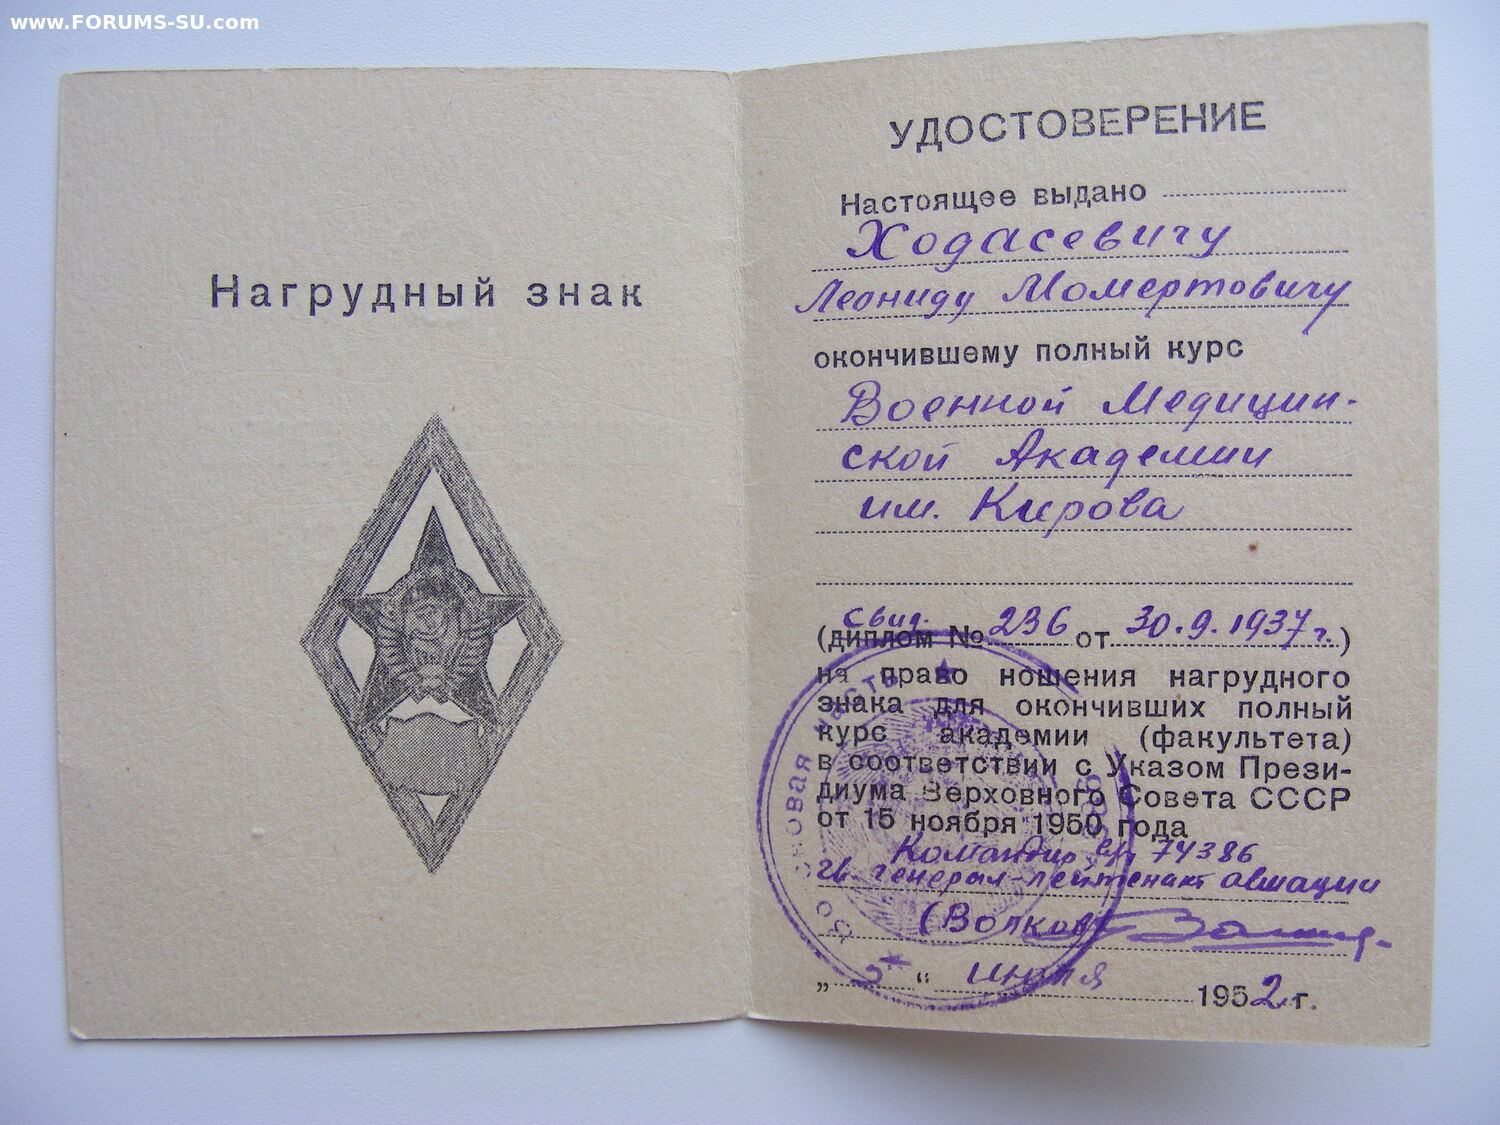 www.FORUMS-SU.com
Нагрудный знак
УДОСТОВЕРЕНИЕ
Настоящее выдано
Ходасевичу
Леониду Момертовичу
окончившему полный курс
Военной Медицин-
ской Академии
им. Кирова
свид.
(диплом № 236 от 30.9.1937 г.)
на право ношения нагрудного
знака для окончивших полный
курс академии (факультета)
в соответствии с Указом Прези-
диума Верховного Совета СССР
от 15 ноября 1950 года
Командир в/ч 74386
гв. генерал-лейтенант авиации
(Волков)
" " июля 1952 г.
часть